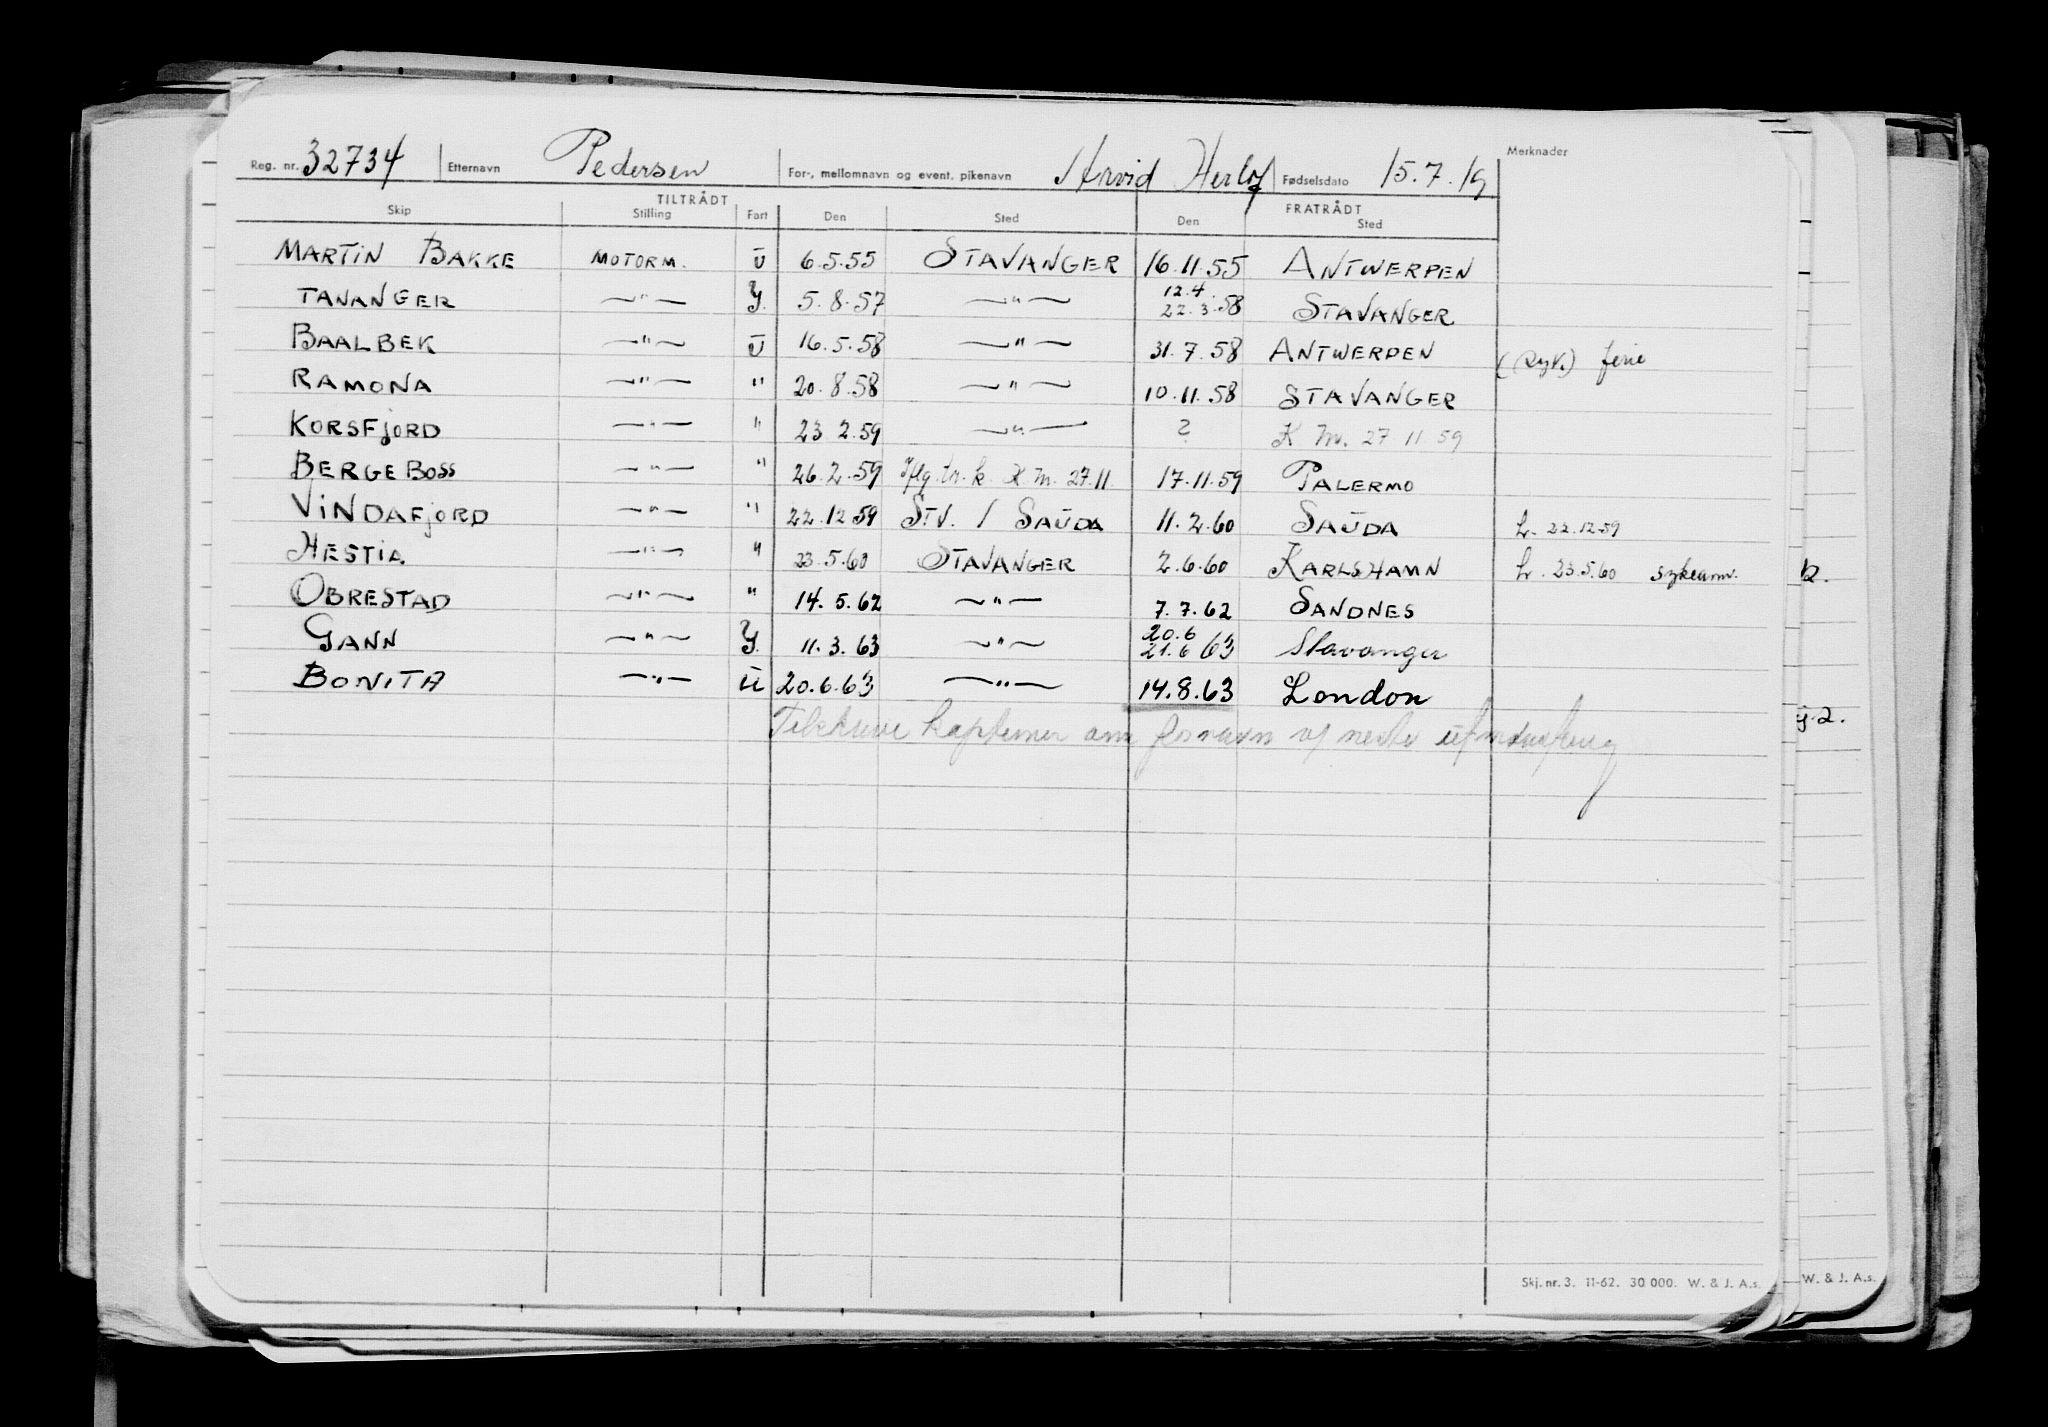 Reg. nr. 32734 Etternavn Pedersen For-, mellomnavn og event. pikenavn Arvid Herlof Fødselsdato 15.7.19 Merknader
TILTRÅDT FRATRÅDT
Skip Stilling Fart Den Sted Den Sted
MARTIN BAKKE MOTORM. U 6.5.55 STAVANGER 16.11.55 ANTWERPEN
TANANGER —"— Y. 5.8.57 —"— 12.4. 22.3.58 STAVANGER
BAALBEK —"— U 16.5.58 —"— 31.7.58 ANTWERPEN ferie
RAMONA —"— " 20.8.58 —"— 10.11.58 STAVANGER
KORSFJORD —"— " 23 2.59 —"— ? K M. 27 11 59
BERGEBOSS —"— " 26.2.59 Iflg. K.M. 27.11. 17.11.59 PALERMO
VINDAFJORD —"— " 22.12 59 STV. / SAUDA 11.2.60 SAUDA L. 22.12.59
HESTIA —"— " 23.5.60 STAVANGER 2.6.60 KARLSHAMN L. 23.5.60
OBRESTAD —"— " 14.5.62 —"— 7.7.62 SANDNES
GANN —"— Y. 11.3.63 —"— 20.6 21.6 63 Stavanger
BONITA —"— U 20.6.63 —"— 14.8.63 London
Tilskrive kapteiner om fornavn v/ neste
Skj. nr. 3. 11-62. 30 000. W. & J. A.s. W. & J. A.s.